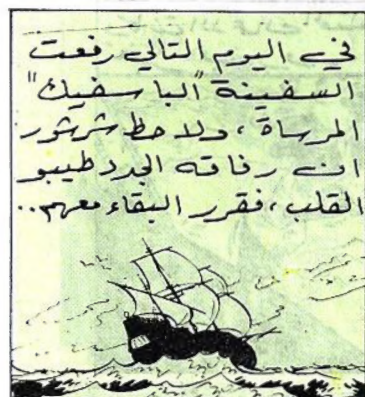 في اليوم التالي رفعت
السفينة "الباسفيك"
المرساة، ولاحظ شرشور
ان رفاقه الجدد طيبو
القلب، فقرر البقاء معهم..